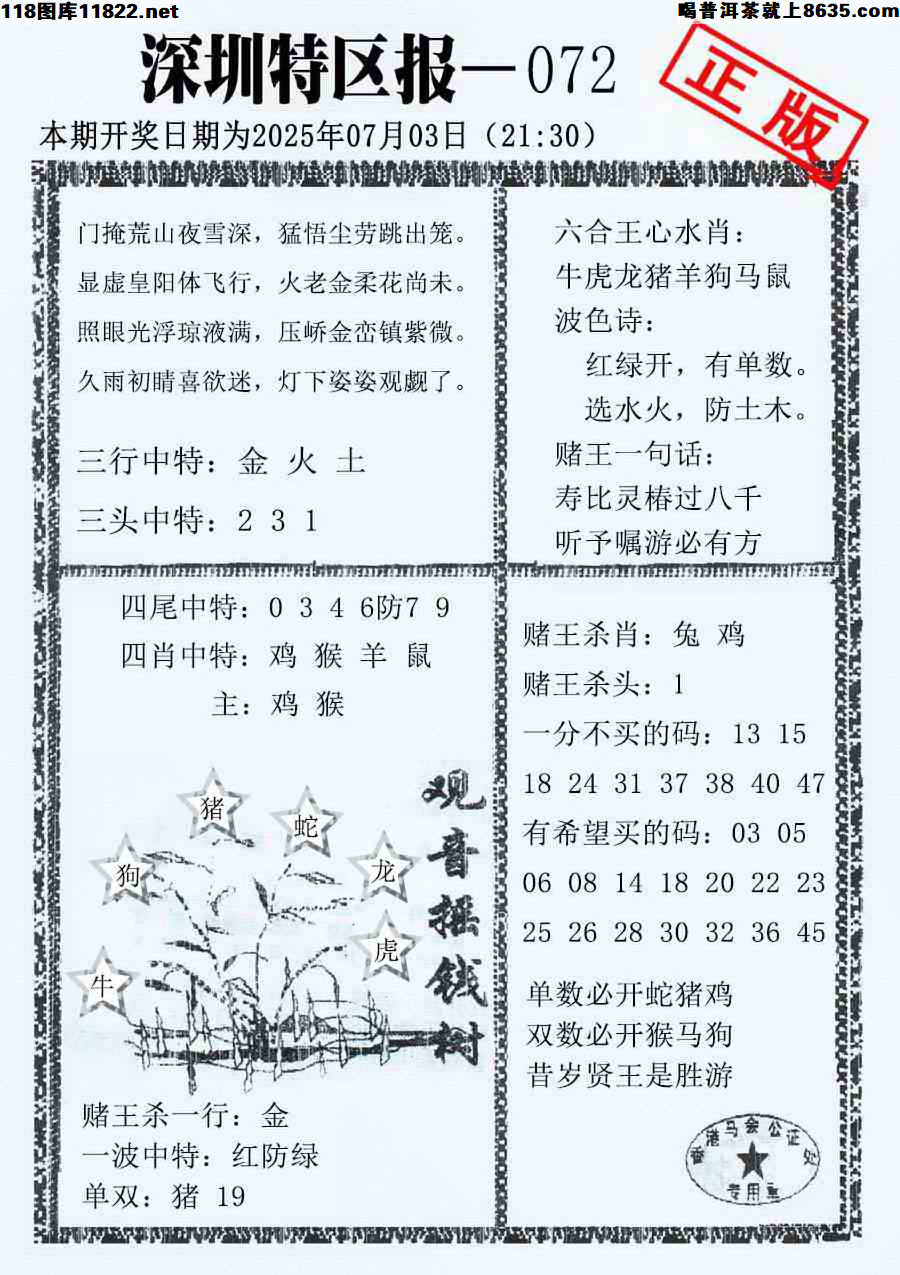 118图库11822.net
喝普洱茶就上8635.com
深圳特区报—072
正版
本期开奖日期为2025年07月03日（21:30）
门掩荒山夜雪深，猛悟尘劳跳出笼。
显虚皇阳体飞行，火老金柔花尚未。
照眼光浮琼液满，压峤金峦镇紫微。
久雨初睛喜欲迷，灯下姿姿观觑了。
三行中特：金 火 土
三头中特：2 3 1
六合王心水肖：
牛虎龙猪羊狗马鼠
波色诗：
红绿开，有单数。
选水火，防土木。
赌王一句话：
寿比灵椿过八千
听予嘱游必有方
四尾中特：0 3 4 6防7 9
四肖中特：鸡 猴 羊 鼠
主：鸡 猴
猪
蛇
狗
龙
虎
牛
观音摇钱树
赌王杀一行：金
一波中特：红防绿
单双：猪 19
赌王杀肖：兔 鸡
赌王杀头：1
一分不买的码：13 15
18 24 31 37 38 40 47
有希望买的码：03 05
06 08 14 18 20 22 23
25 26 28 30 32 36 45
单数必开蛇猪鸡
双数必开猴马狗
昔岁贤王是胜游
香港马会公证处
专用章